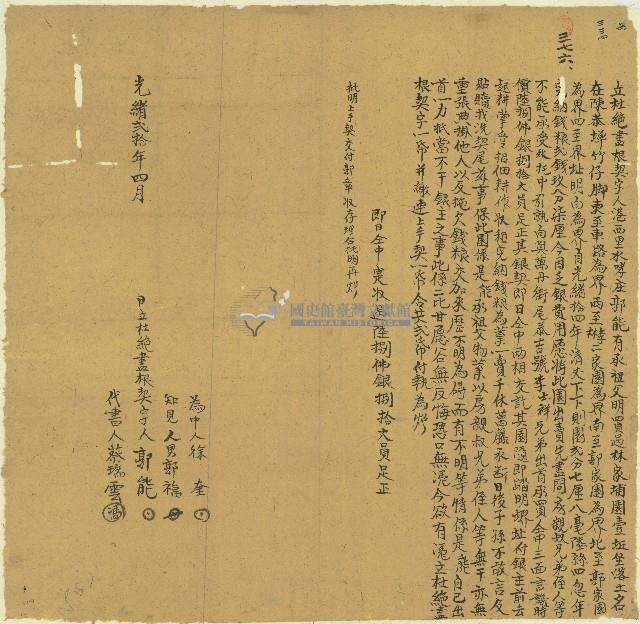 三七六、
立杜絕盡根契字人港西里水哮庄郭能有承祖父明買過林家埔園壹坵坐落土名
在陳恭埤竹仔脚東至車路為界西至李二家園為界南至郭家園為界北至郭家園
為界四至界址明白為界自光緒拾四年清丈下下則園弍分七厘八毫陸絲四忽年
納錢粮弍錢玖分柒厘今因乏銀費用愿將此園出賣先盡問房親叔兄弟侄人等
不能承受外托中引就向與萬丹街尾泰吉號李士祥兄弟出首承買仝中三面言議時
價陸捌佛銀捌拾大員足正其銀契即日仝中兩相交訖其園隨即踏明界址付銀主前去
起耕掌管招佃耕作收租完納錢粮為業一賣千休葛藤永斷日後子孫不敢言及
貼贖找洗契尾等事保此園係是能承祖父物業以房親叔兄弟侄人等無干亦無
重張典掛他人以及拖欠錢粮交加來歷不明為碍而有不明等情係是能自己出
首一力抵當不干銀主之事此係二比甘愿各無反悔恐口無憑今欲有憑立杜絕盡
根契字一帋并繳連上手契一帋合共弍帋付執為炤
即日仝中寔收過陸捌佛銀捌拾大員足正
批明上手契交付郭章收存埋合批明再炤
為中人徐奎
知見人男郭福
光緒弍拾年四月 日立杜絕盡根契字人郭能
代書人蔡瑞雲
國史館臺灣文獻館
TAIWAN HISTORICA